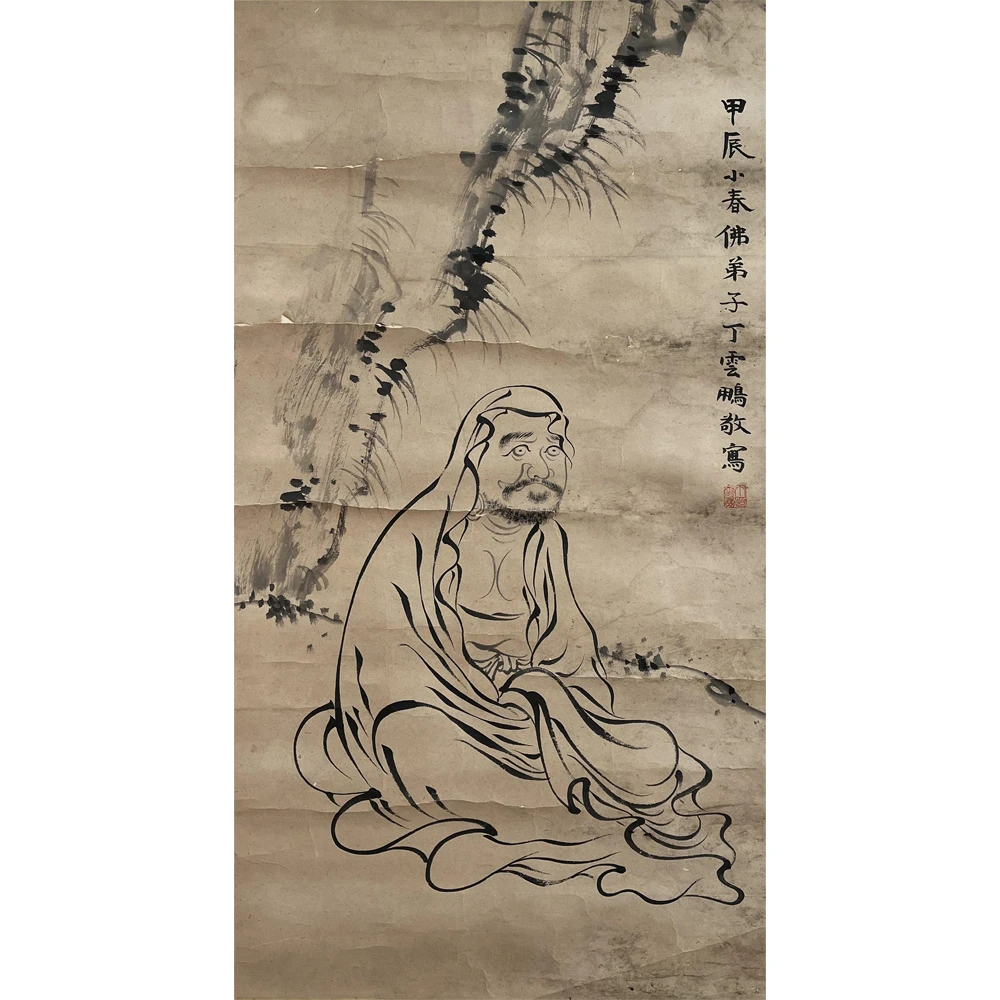 甲辰小春佛弟子丁雲鵬敬寫